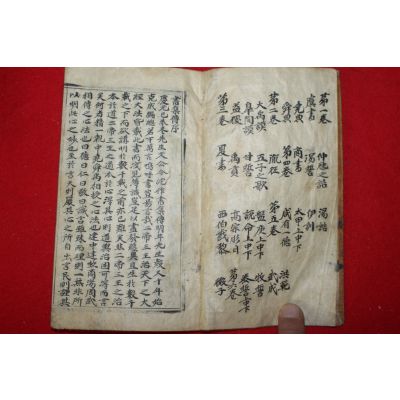 第一卷 仲虺之誥 湯誥
虞書 湯誓 伊訓
堯典 商書 太甲上中下 洪範
舜典 第四卷 咸有一德 武成
第二卷 胤征 第五卷 牧誓
大禹謨 五子之歌 盤庚上中下 泰誓上中下
皐陶謨 甘誓 說命上中下 第六卷
益稷 禹貢 高宗肜日 微子
第三卷 夏書 西伯戡黎
書集傳序
慶元己未冬先生文公令沈作書集傳明年先生歿又十年始
克成編總若干萬言嗚呼書豈易言哉二帝三王治天下之大
經大法皆載此書而淺見薄識豈足以盡發蘊奧且生於數千
載之下而欲講明於數千載之前亦已難矣然二帝三王之治
本於道二帝三王之道本於心得其心則道與治固可得而言
矣何者精一執中堯舜禹相授之心法也建中建極商湯周武
相傳之心法也曰德曰仁曰敬曰誠言雖殊而理則一無非所
以明此心之妙也至於言天則嚴其心之所自出言民則謹其